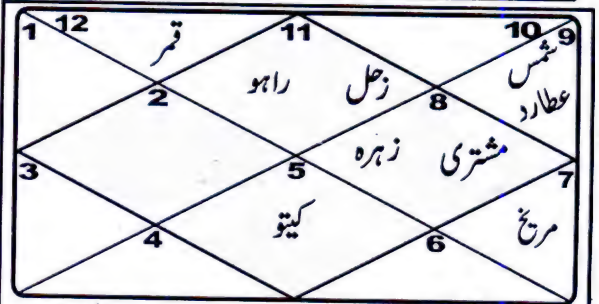 1 12 قمر 11 10 9
شمس
2 راہو زحل 8 عطارد
3 5 زہرہ مشتری 7
4 کیتو 6 مریخ